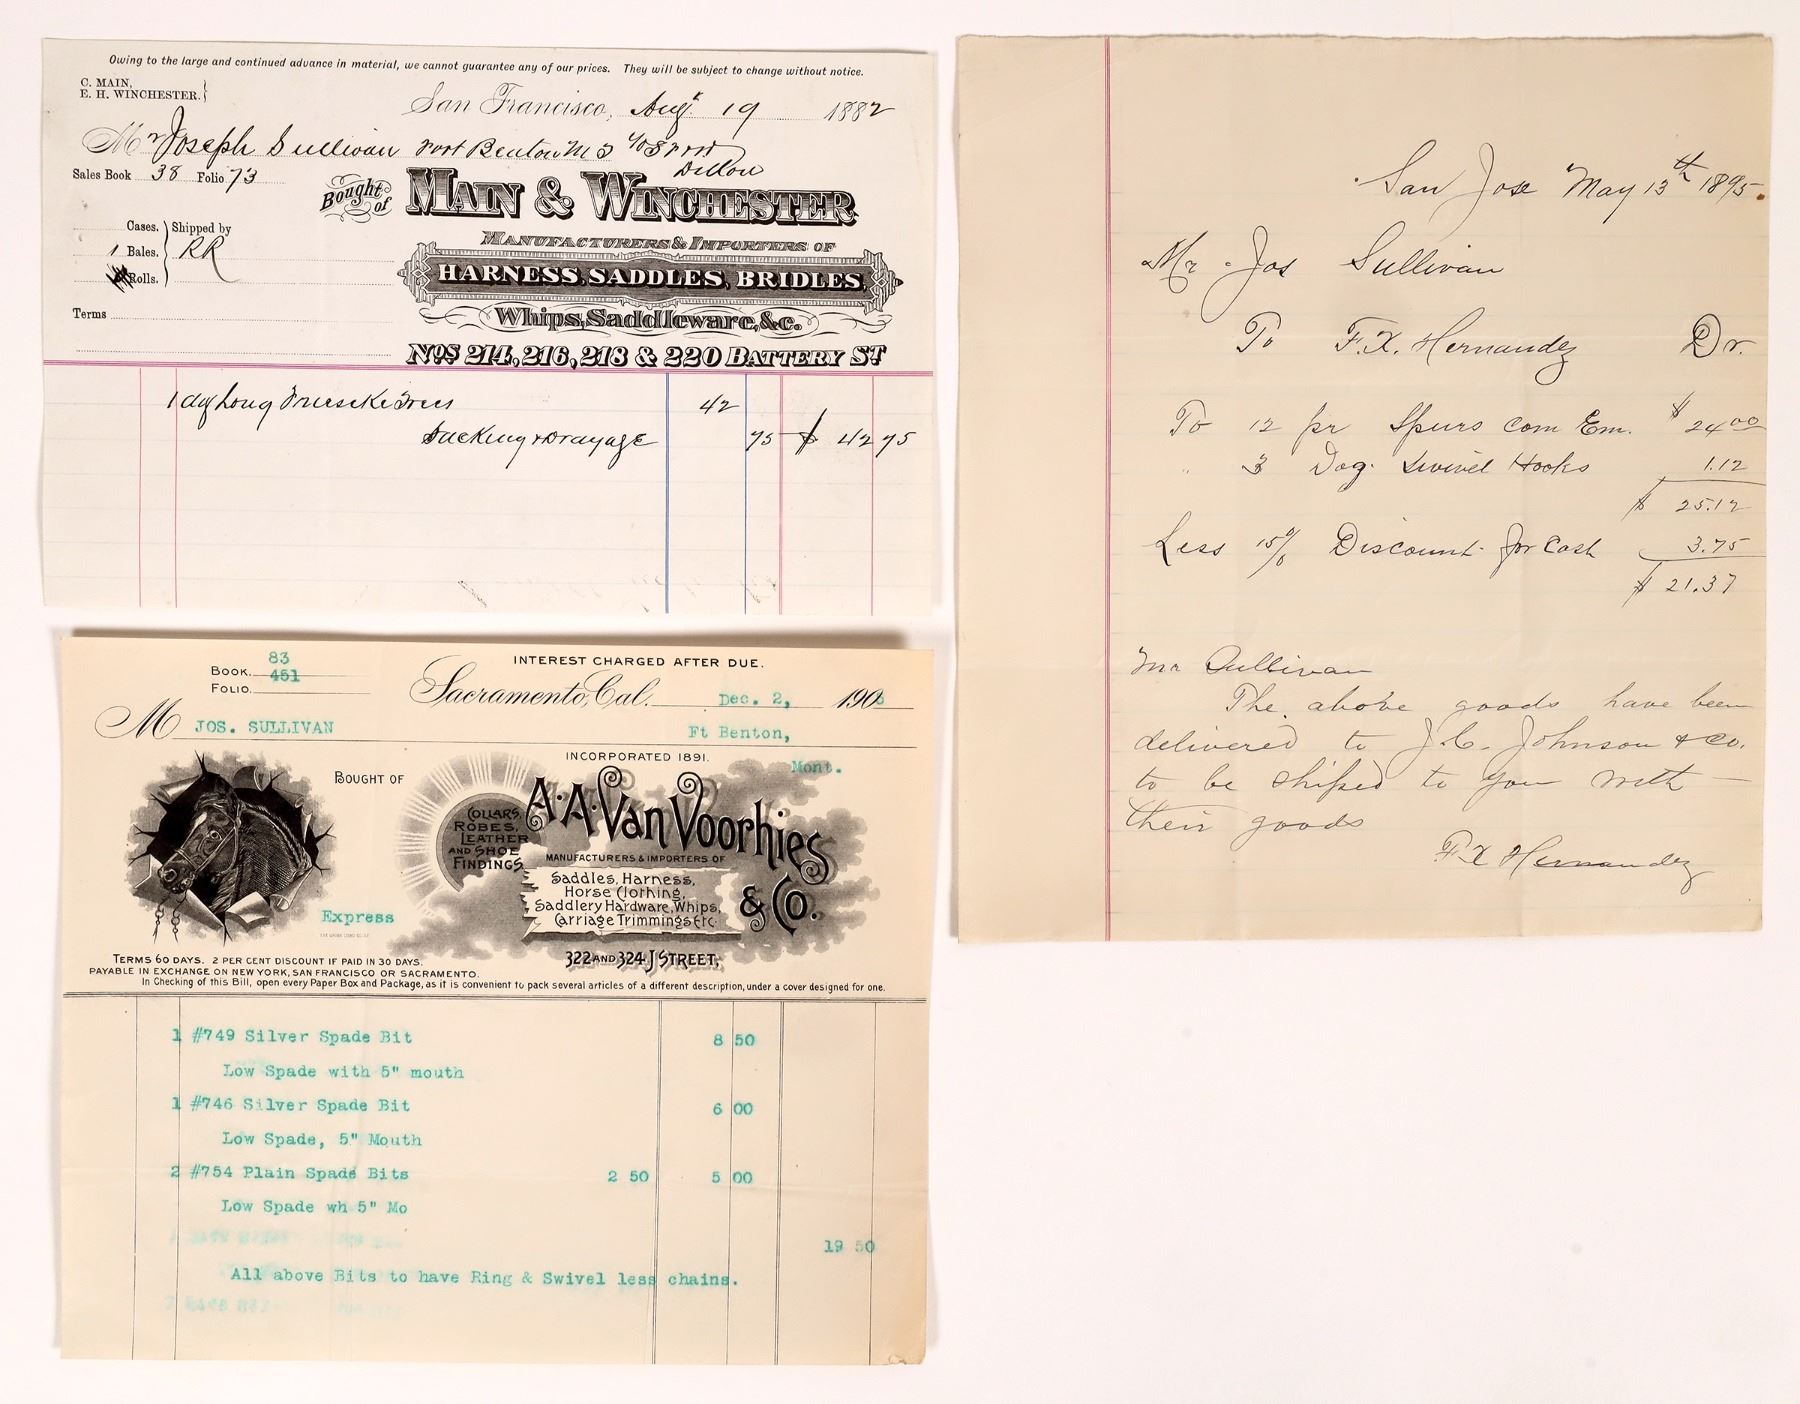 Owing to the large and continued advance in material, we cannot guarantee any of our prices. They will be subject to change without notice.
C. MAIN,
E. H. WINCHESTER.
San Francisco, Augt 19 1882
Mr Joseph Sullivan Fort Benton M
Dillon
Sales Book 38 Folio 73
Bought of MAIN & WINCHESTER
MANUFACTURERS & IMPORTERS OF
HARNESS, SADDLES, BRIDLES,
Whips, Saddleware, &c.
NOS 214, 216, 218 & 220 BATTERY ST
Cases. Shipped by
1 Bales. RR
Rolls.
Terms
1 Long Trees 42
Packing & Drayage 75 $ 42 75
BOOK. 83
FOLIO. 451
INTEREST CHARGED AFTER DUE.
Sacramento, Cal. Dec. 2, 190
M JOS. SULLIVAN Ft Benton,
Mont.
INCORPORATED 1891.
BOUGHT OF
A. A. Van Voorhies & Co.
COLLARS, ROBES, LEATHER AND SHOE FINDINGS
MANUFACTURERS & IMPORTERS OF
Saddles, Harness,
Horse Clothing,
Saddlery Hardware, Whips,
Carriage Trimmings Etc.
322 AND 324 J STREET,
Express
TERMS 60 DAYS. 2 PER CENT DISCOUNT IF PAID IN 30 DAYS.
PAYABLE IN EXCHANGE ON NEW YORK, SAN FRANCISCO OR SACRAMENTO.
In Checking of this Bill, open every Paper Box and Package, as it is convenient to pack several articles of a different description, under a cover designed for one.
1 #749 Silver Spade Bit 8 50
Low Spade with 5" mouth
1 #746 Silver Spade Bit 6 00
Low Spade, 5" Mouth
2 #754 Plain Spade Bits 2 50 5 00
Low Spade wh 5" Mo
19 50
All above Bits to have Ring & Swivel less chains.
San Jose May 13th 1895.
Mr Jos Sullivan
To F.X. Hernandez Dr.
To 12 pr Spurs com Em. $ 24 00
" 3 Dog Swivel Hooks 1.12
$ 25.12
Less 15% Discount for Cash 3.75
$ 21.37
Mr Sullivan
The above goods have been
delivered to J.C. Johnson & Co.
to be shiped to you with
their goods
F.X Hernandez